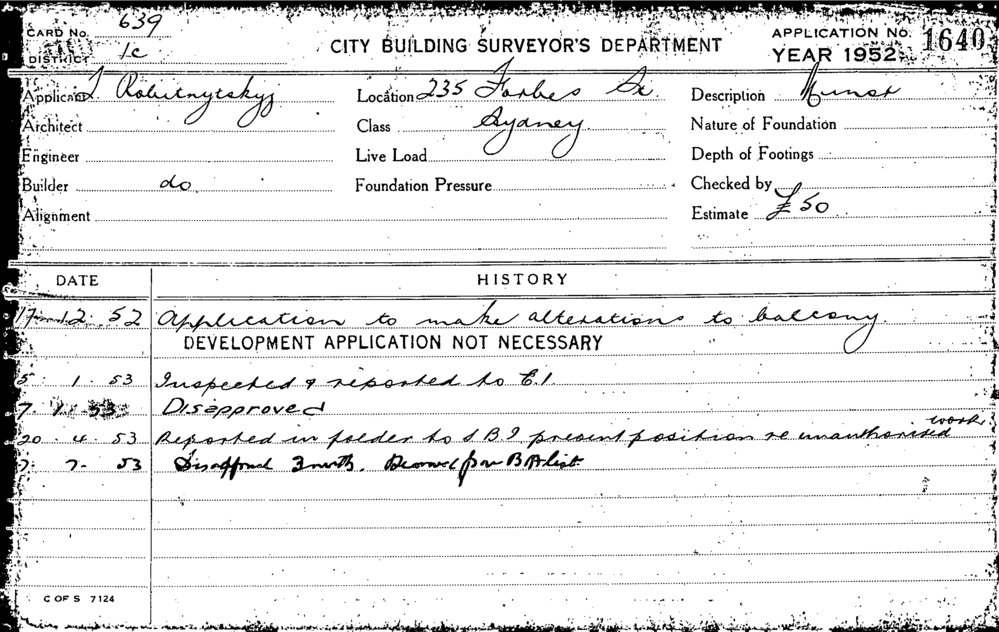 CARD No. 639
CITY BUILDING SURVEYOR'S DEPARTMENT
APPLICATION No. 1640
DISTRICT 1c
YEAR 1952
Applicant J. Robitnytskyj
Location 235 Forbes St
Description
Architect
Class Sydney
Nature of Foundation
Engineer
Live Load
Depth of Footings
Builder do
Foundation Pressure
Checked by
Alignment
Estimate £50
DATE
HISTORY
17 12 52 Application to make alterations to balcony
DEVELOPMENT APPLICATION NOT NECESSARY
5 1 53 Inspected & reported to E.I.
7 1 53 Disapproved
20 4 53 Reported in folder to S B I present position re unauthorised work
7 7 53 Disapproved 3 mth. Removed from BA list
C OF S 7124